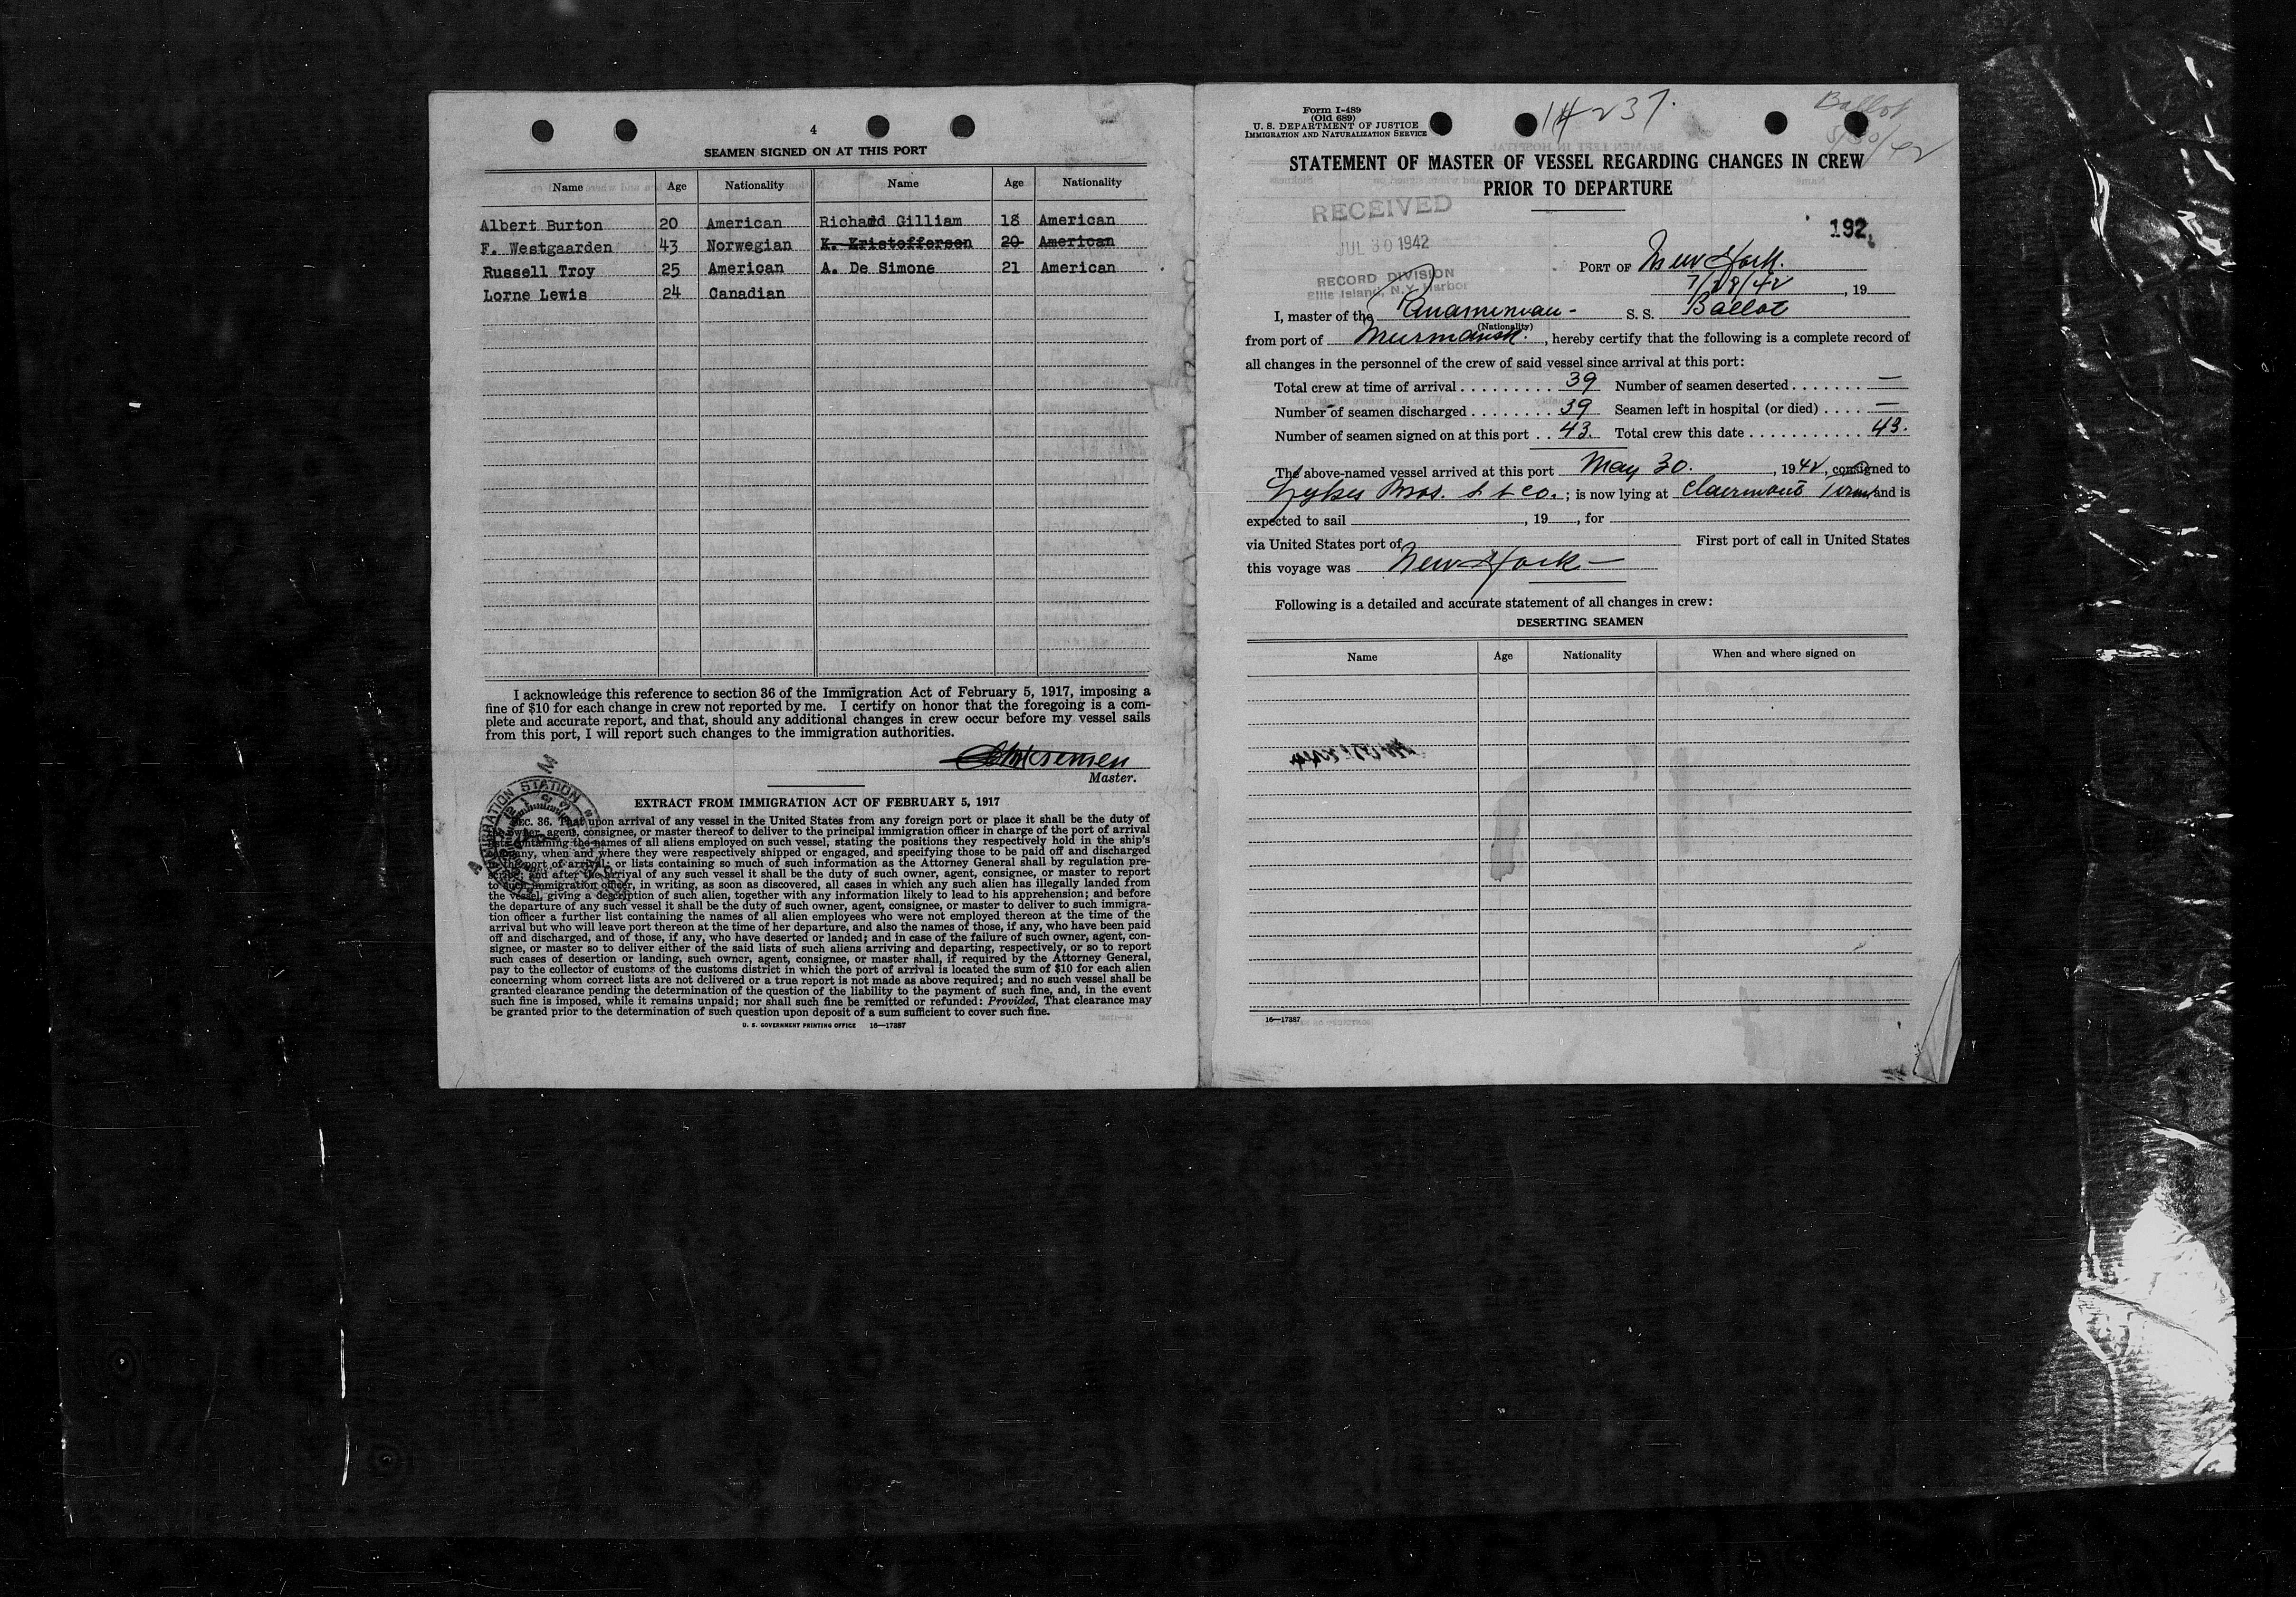 4
SEAMEN SIGNED ON AT THIS PORT
Name Age Nationality Name Age Nationality
Albert Burton 20 American Richard Gilliam 18 American
F. Westgaarden 43 Norwegian K. Kristoffersen 20 American
Russell Troy 25 American A. De Simone 21 American
Lorne Lewis 24 Canadian
I acknowledge this reference to section 36 of the Immigration Act of February 5, 1917, imposing a
fine of $10 for each change in crew not reported by me. I certify on honor that the foregoing is a com-
plete and accurate report, and that, should any additional changes in crew occur before my vessel sails
from this port, I will report such changes to the immigration authorities.
Master.
EXTRACT FROM IMMIGRATION ACT OF FEBRUARY 5, 1917
SEC. 36. That upon arrival of any vessel in the United States from any foreign port or place it shall be the duty of
the owner, agent, consignee, or master thereof to deliver to the principal immigration officer in charge of the port of arrival
lists containing the names of all aliens employed on such vessel, stating the positions they respectively hold in the ship's
company, when and where they were respectively shipped or engaged, and specifying those to be paid off and discharged
in the port of arrival; or lists containing so much of such information as the Attorney General shall by regulation pre-
scribe; and after the arrival of any such vessel it shall be the duty of such owner, agent, consignee, or master to report
to such immigration officer, in writing, as soon as discovered, all cases in which any such alien has illegally landed from
the vessel, giving a description of such alien, together with any information likely to lead to his apprehension; and before
the departure of any such vessel it shall be the duty of such owner, agent, consignee, or master to deliver to such immigra-
tion officer a further list containing the names of all alien employees who were not employed thereon at the time of the
arrival but who will leave port thereon at the time of her departure, and also the names of those, if any, who have been paid
off and discharged, and of those, if any, who have deserted or landed; and in case of the failure of such owner, agent, con-
signee, or master so to deliver either of the said lists of such aliens arriving and departing, respectively, or so to report
such cases of desertion or landing, such owner, agent, consignee, or master shall, if required by the Attorney General,
pay to the collector of customs of the customs district in which the port of arrival is located the sum of $10 for each alien
concerning whom correct lists are not delivered or a true report is not made as above required; and no such vessel shall be
granted clearance pending the determination of the question of the liability to the payment of such fine, and, in the event
such fine is imposed, while it remains unpaid; nor shall such fine be remitted or refunded: Provided, That clearance may
be granted prior to the determination of such question upon deposit of a sum sufficient to cover such fine.
U. S. GOVERNMENT PRINTING OFFICE 16—17387
IMMIGRATION STATION
Form I-489
(Old 689)
U. S. DEPARTMENT OF JUSTICE
IMMIGRATION AND NATURALIZATION SERVICE
14237.
Ballot
5/30/42
STATEMENT OF MASTER OF VESSEL REGARDING CHANGES IN CREW
PRIOR TO DEPARTURE
RECEIVED
JUL 30 1942
RECORD DIVISION
Ellis Island, N.Y. Harbor
192
PORT OF New York.
7/28/42, 19
I, master of the Panamenian - S. S. Ballot
(Nationality)
from port of Murmansk., hereby certify that the following is a complete record of
all changes in the personnel of the crew of said vessel since arrival at this port:
Total crew at time of arrival . . . . . . . . . 39 Number of seamen deserted . . . . . . . —
Number of seamen discharged . . . . . . . . 39 Seamen left in hospital (or died) . . . . —
Number of seamen signed on at this port . . 43. Total crew this date . . . . . . . . . . . 43.
The above-named vessel arrived at this port May 30., 1942, consigned to
Lykes Bros. S S Co.; is now lying at Claremont Term and is
expected to sail , 19 , for
via United States port of First port of call in United States
this voyage was New York —
Following is a detailed and accurate statement of all changes in crew:
DESERTING SEAMEN
Name Age Nationality When and where signed on
16—17387